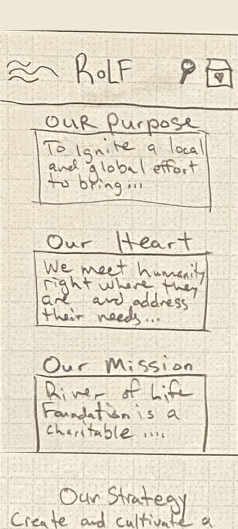 RoLF
OUR Purpose
To Ignite a local
and global effort
to bring...
Our Heart
We meet humanity
right where they
are and address
their needs...
Our Mission
River of Life
Foundation is a
charitable ....
Our Strategy
Create and cultivate a